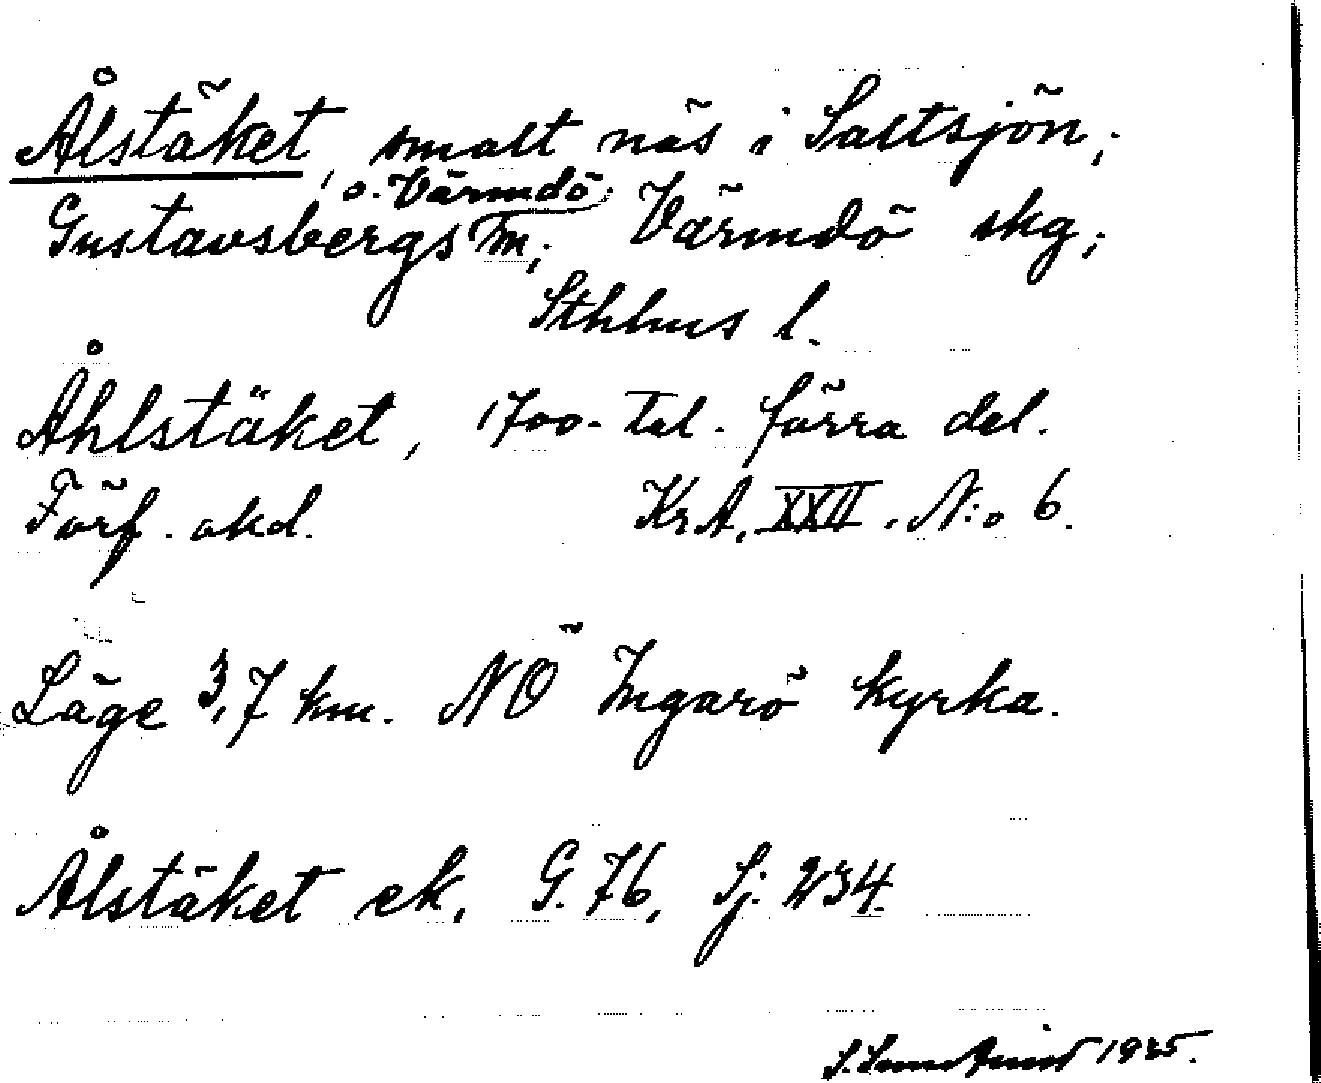 Ålstäket, smalt näs i Saltsjön;
Gustavsbergs o. Värmdö m; Värmdö skg;
Sthlms l.
Åhlstäket, 1700-tal. förra del.
Förf. okd. KrA. XXII. N:o 6.
Läge 3,7 km. NÖ Ingarö kyrka.
Ålstäket ek. G. 76, Sj. 234.
1925.